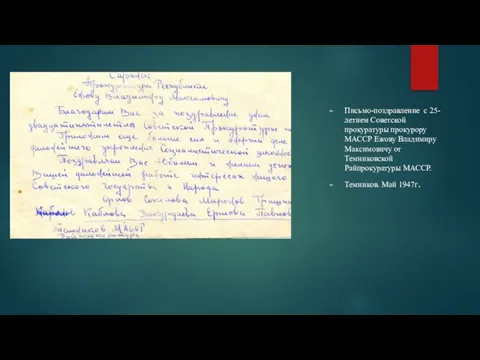 Саранск
Прокуратура Республики
Ежову Владимиру Максимовичу
Благодарим Вас за поздравление днем
двадцатипятилетия Советской Прокуратуры
Приложим еще больше сил и энергии деле
дальнейшего укрепления Социалистической законнос
Поздравляем Вас Юбилеем и желаем успех
Вашей дальнейшей работе интересах нашего
Советского Государства и Народа
Соколова Миронов Гришин
Каблова Ершова Павлов
Темников МАССР
- Письмо-поздравление с 25-
летием Советской
прокуратуры прокурору
МАССР Ежову Владимиру
Максимовичу от
Темниковской
Райпрокуратуры МАССР.
- Темников. Май 1947г.